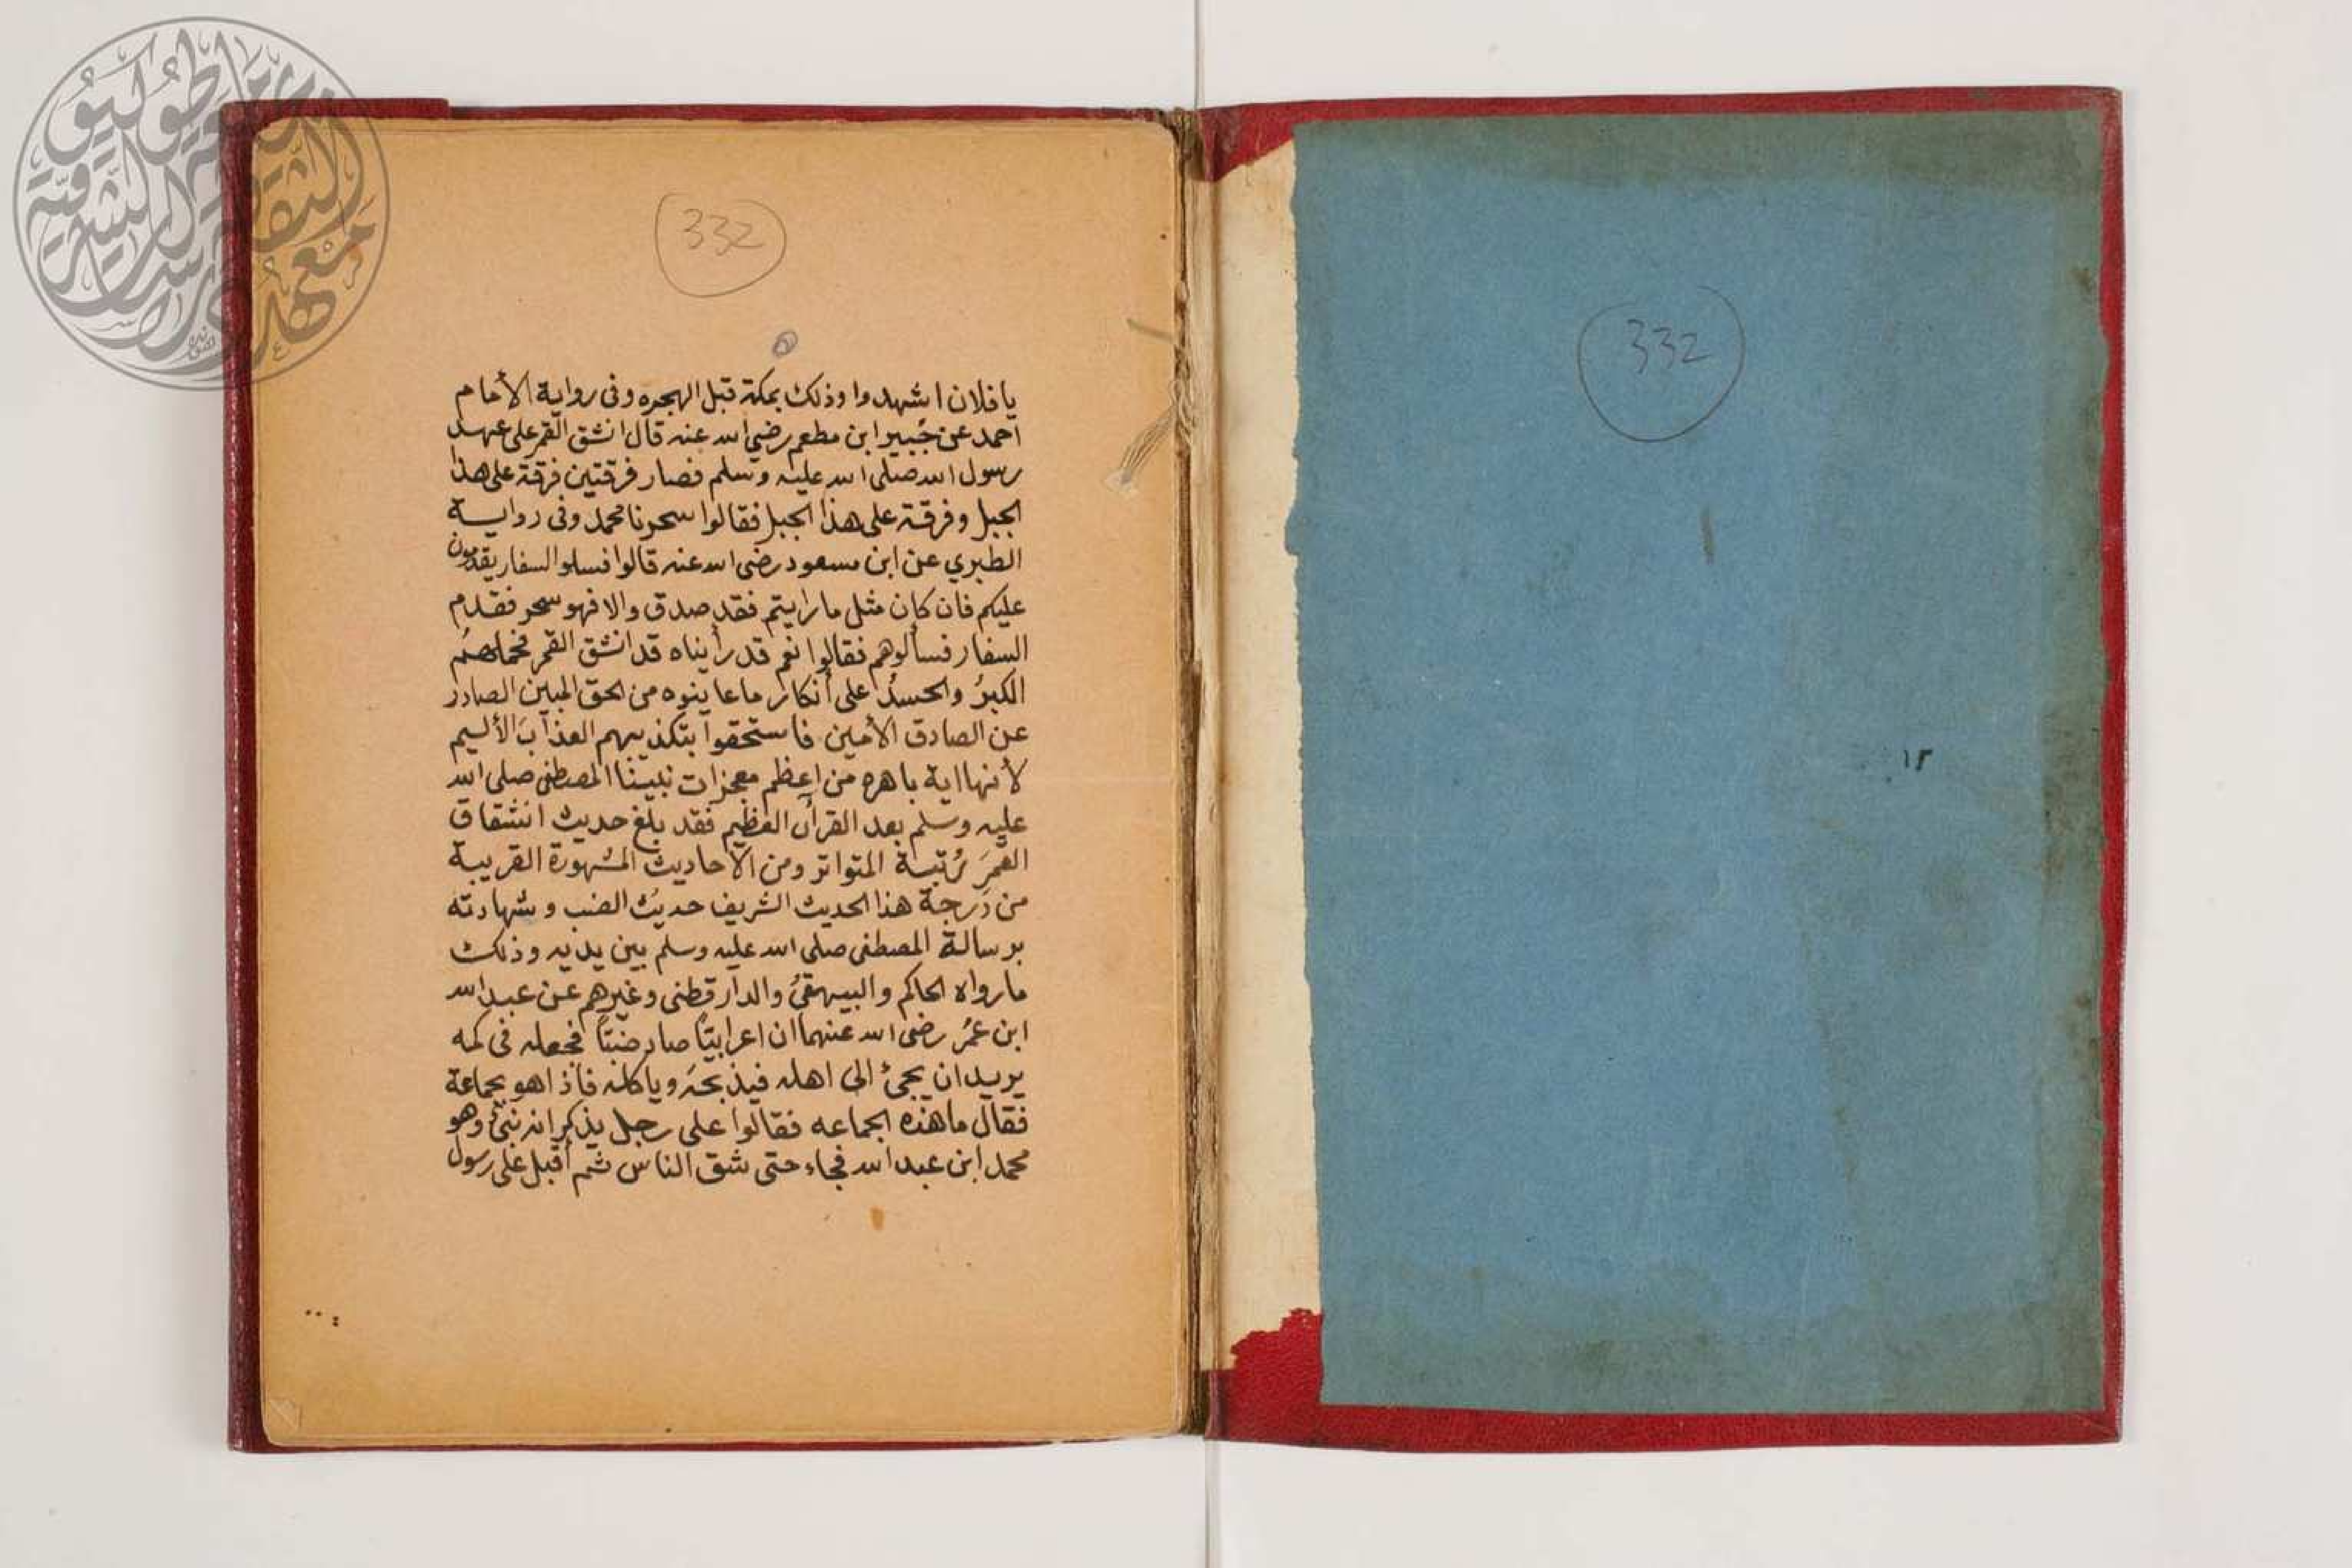 332
١٢
332
٥
يا فلان اشهدوا وذلك بمكة قبل الهجره وفى رواية الأمام
احمد عن جُبير ابن مطعم رضي الله عنه قال انشق القمر على عهد
رسول الله صلى الله عليه وسلم فصار فرقتين فرقة على هذا
الجبل وفرقة على هذا الجبل فقالوا سحرنا محمد وفى رواية
الطبري عن ابن مسعود رضى الله عنه قالوا فسلوا السفار يقدمون
عليكم فان كان مثل ما رايتم فقد صدق والا فهو سحر فقدم
السفار فسألوهم فقالوا نعم قد رأيناه قد انشق القمر فحملهم
الكبرُ والحسدُ على أنكار ما عاينوه من الحق المبين الصادر
عن الصادق الأمين فاستحقوا بتكذيبهم العذابَ الأليم
لأنها اية باهره من اعظم معجزات نبينا المصطفى صلى الله
عليه وسلم بعد القرآن العظيم فقد بلغ حديث انشقاق
القمَرَ رُتبة المتواتر ومن الأحاديث المشهورة القريبة
من دَرجة هذا الحديث الشريف حديث الضب وشهادته
برسالة المصطفى صلى الله عليه وسلم بين يديه وذلك
ما رواه الحاكم والبيهقيُ والدارقطنى وغيرهم عن عبد الله
ابن عمُر رضى الله عنهما ان اعرابيّاً صاد ضبّاً فجعله فى كمه
يريد ان يجئ الى اهله فيذبحَه وياكله فأذا هو بجماعة
فقال ما هذه الجماعه فقالوا على رجل يذكر انه نبيّ وهو
محمد ابن عبد الله فجاء حتى شق الناس ثم أقبل على رسول